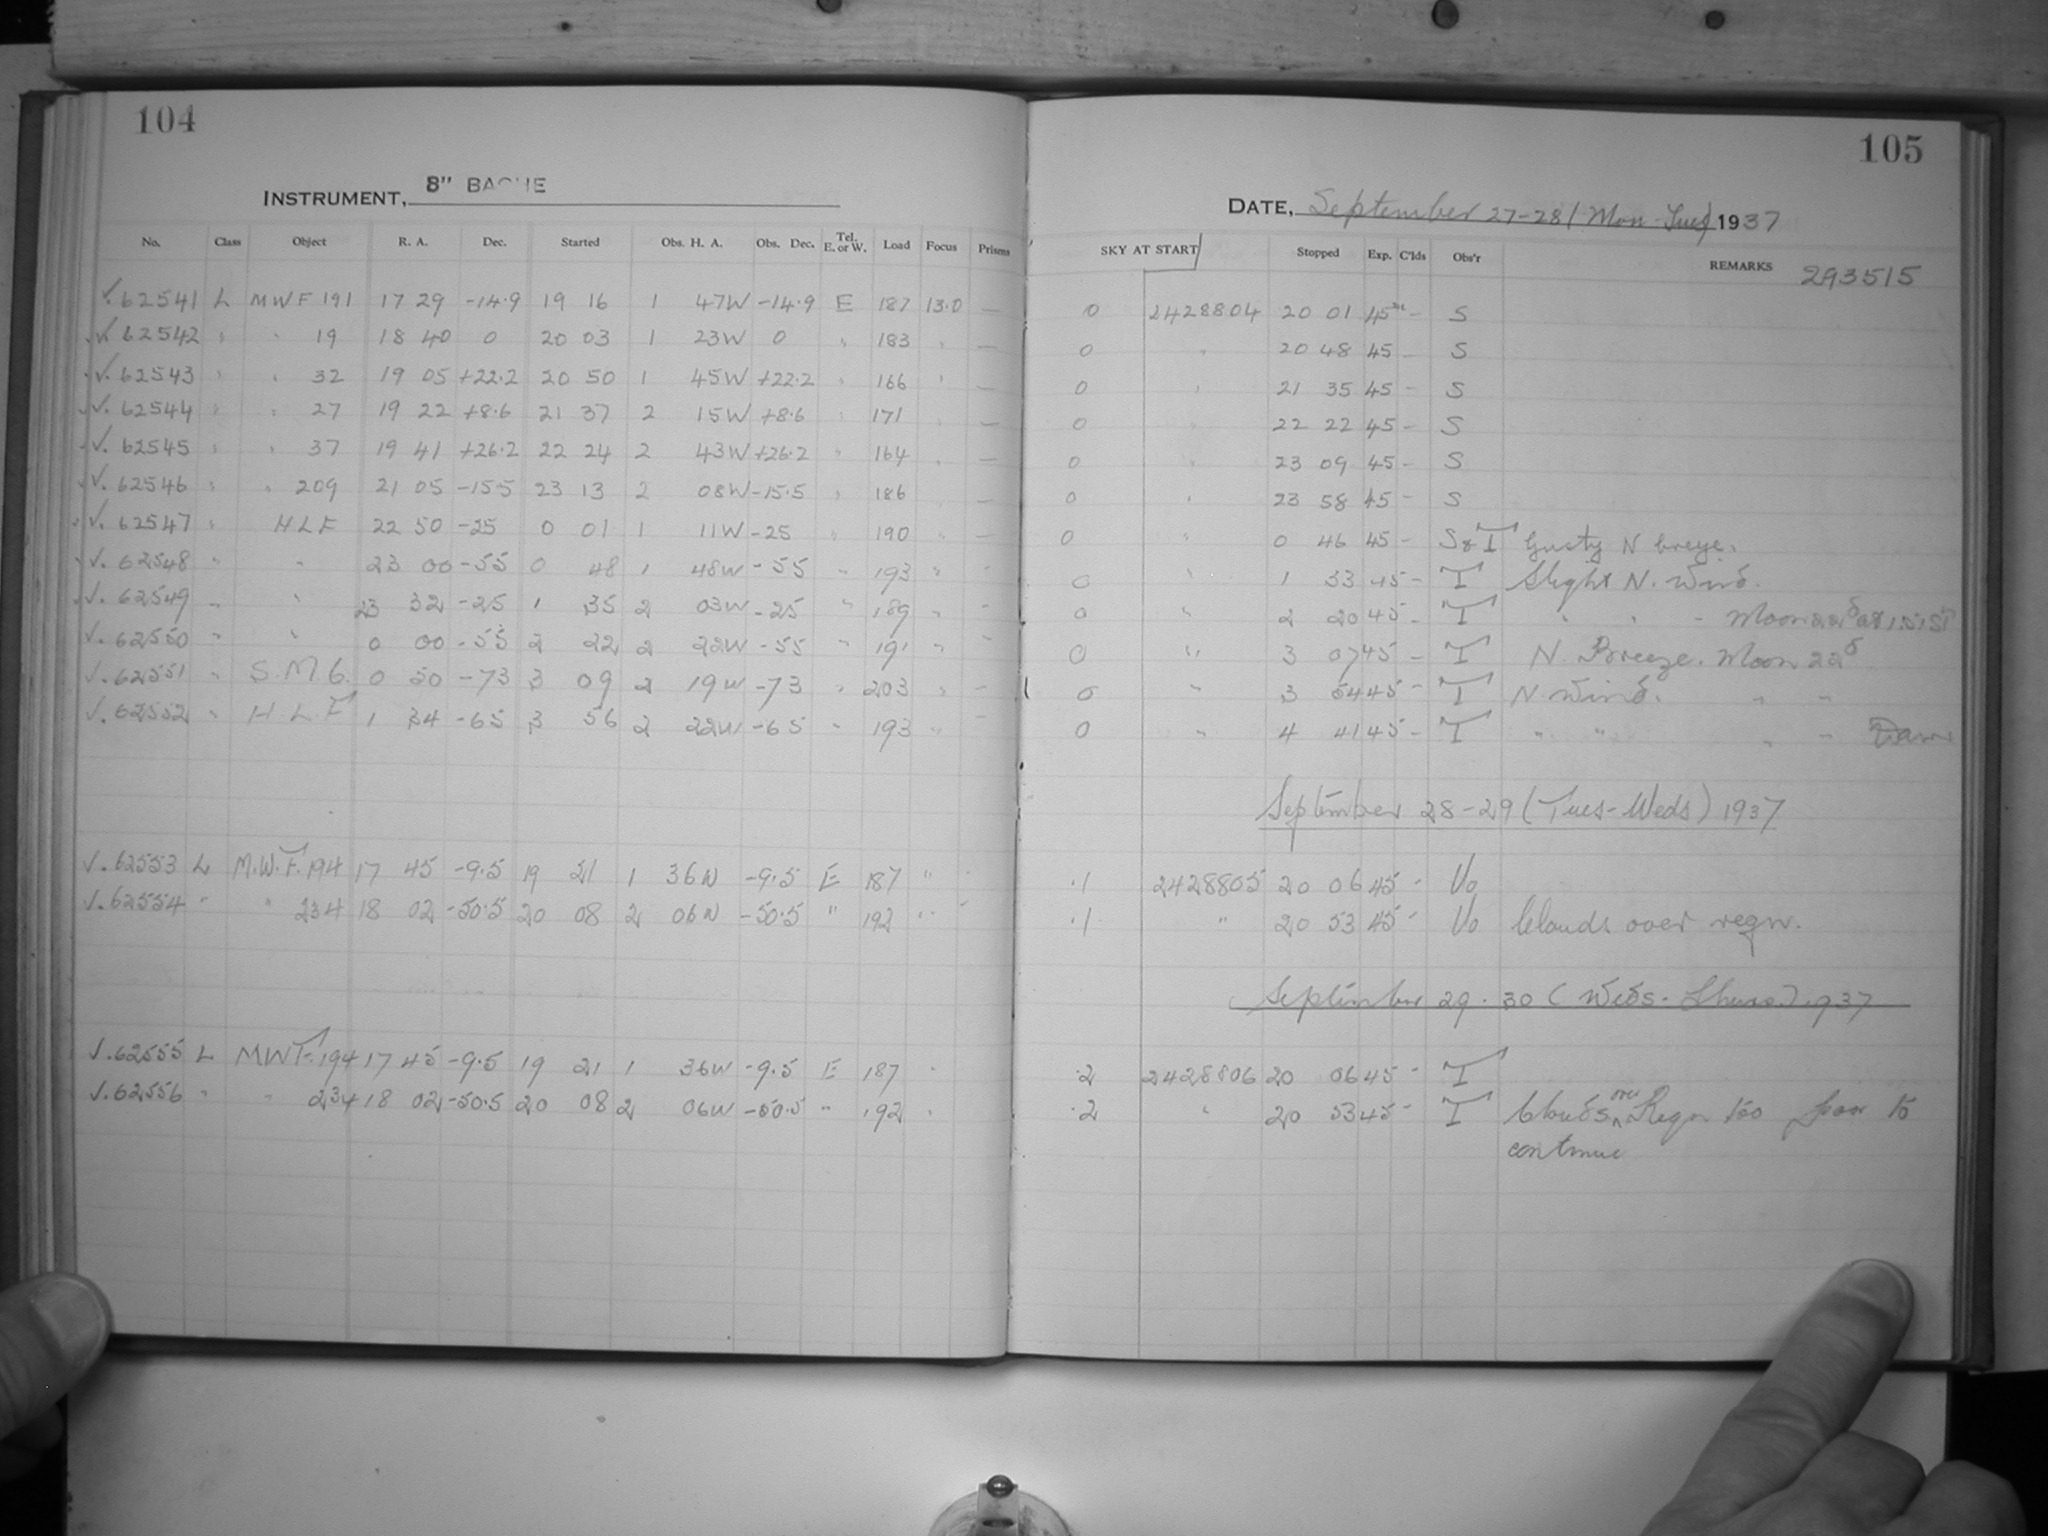 104
INSTRUMENT, 8" BACHE
No. Class Object R. A. Dec. Started Obs. H. A. Obs. Dec. Tel. E. or W. Load Focus Prisms
✓. 62541 L MWF 191 17 29 -14.9 19 16 1 47W -14.9 E 187 13.0 —
✓. 62542 " " 19 18 40 0 20 03 1 23W 0 " 183 " —
✓. 62543 " " 32 19 05 +22.2 20 50 1 45W +22.2 " 166 " —
✓. 62544 " " 27 19 22 +8.6 21 37 2 15W +8.6 " 171 " —
✓. 62545 " " 37 19 41 +26.2 22 24 2 43W +26.2 " 164 " —
✓. 62546 " " 209 21 05 -15.5 23 13 2 08W -15.5 " 186 —
✓. 62547 " HLF 22 50 -25 0 01 1 11W -25 " 190 " —
✓. 62548 " " 23 00 -55 0 48 1 48W -55 " 193 " -
✓. 62549 " " 23 32 -25 1 35 2 03W -25 " 189 " -
✓. 62550 " " 0 00 -55 2 22 2 22W -55 " 191 " -
✓. 62551 " S.M.C. 0 50 -73 3 09 2 19W -73 " 203 " -
✓. 62552 " H.L.F 1 34 -65 3 56 2 22W -65 " 193 " -
✓. 62553 L M.W.F. 194 17 45 -9.5 19 21 1 36W -9.5 E 187 " -
✓. 62554 " " 234 18 02 -50.5 20 08 2 06W -50.5 " 192 " -
✓. 62555 L MWF. 194 17 45 -9.5 19 21 1 36W -9.5 E 187 "
✓. 62556 " " 234 18 02 -50.5 20 08 2 06W -50.5 " 192 "
105
DATE, September 27-28 (Mon-Tues) 1937
SKY AT START Stopped Exp. C'lds Obs'r REMARKS 293515
0 2428804 20 01 45m - S
0 " 20 48 45 - S
0 " 21 35 45 - S
0 " 22 22 45 - S
0 " 23 09 45 - S
0 " 23 58 45 - S
0 " 0 46 45 - S & T Gusty N breeze.
0 " 1 33 45 - T Slight N. Wind.
0 " 2 20 45 - T " " - Moon 22d at
0 " 3 07 45 - T N. Breeze. Moon 22d
0 " 3 54 45 - T N. Wind. " "
0 " 4 41 45 - T " " " " Dawn
September 28-29 (Tues-Weds) 1937
.1 2428805 20 06 45 - Vo
.1 " 20 53 45 - Vo Clouds over regn.
September 29-30 (Weds-Thurs) 1937
.2 2428806 20 06 45 - T
.2 " 20 53 45 - T Clouds over Regn too poor to
continue